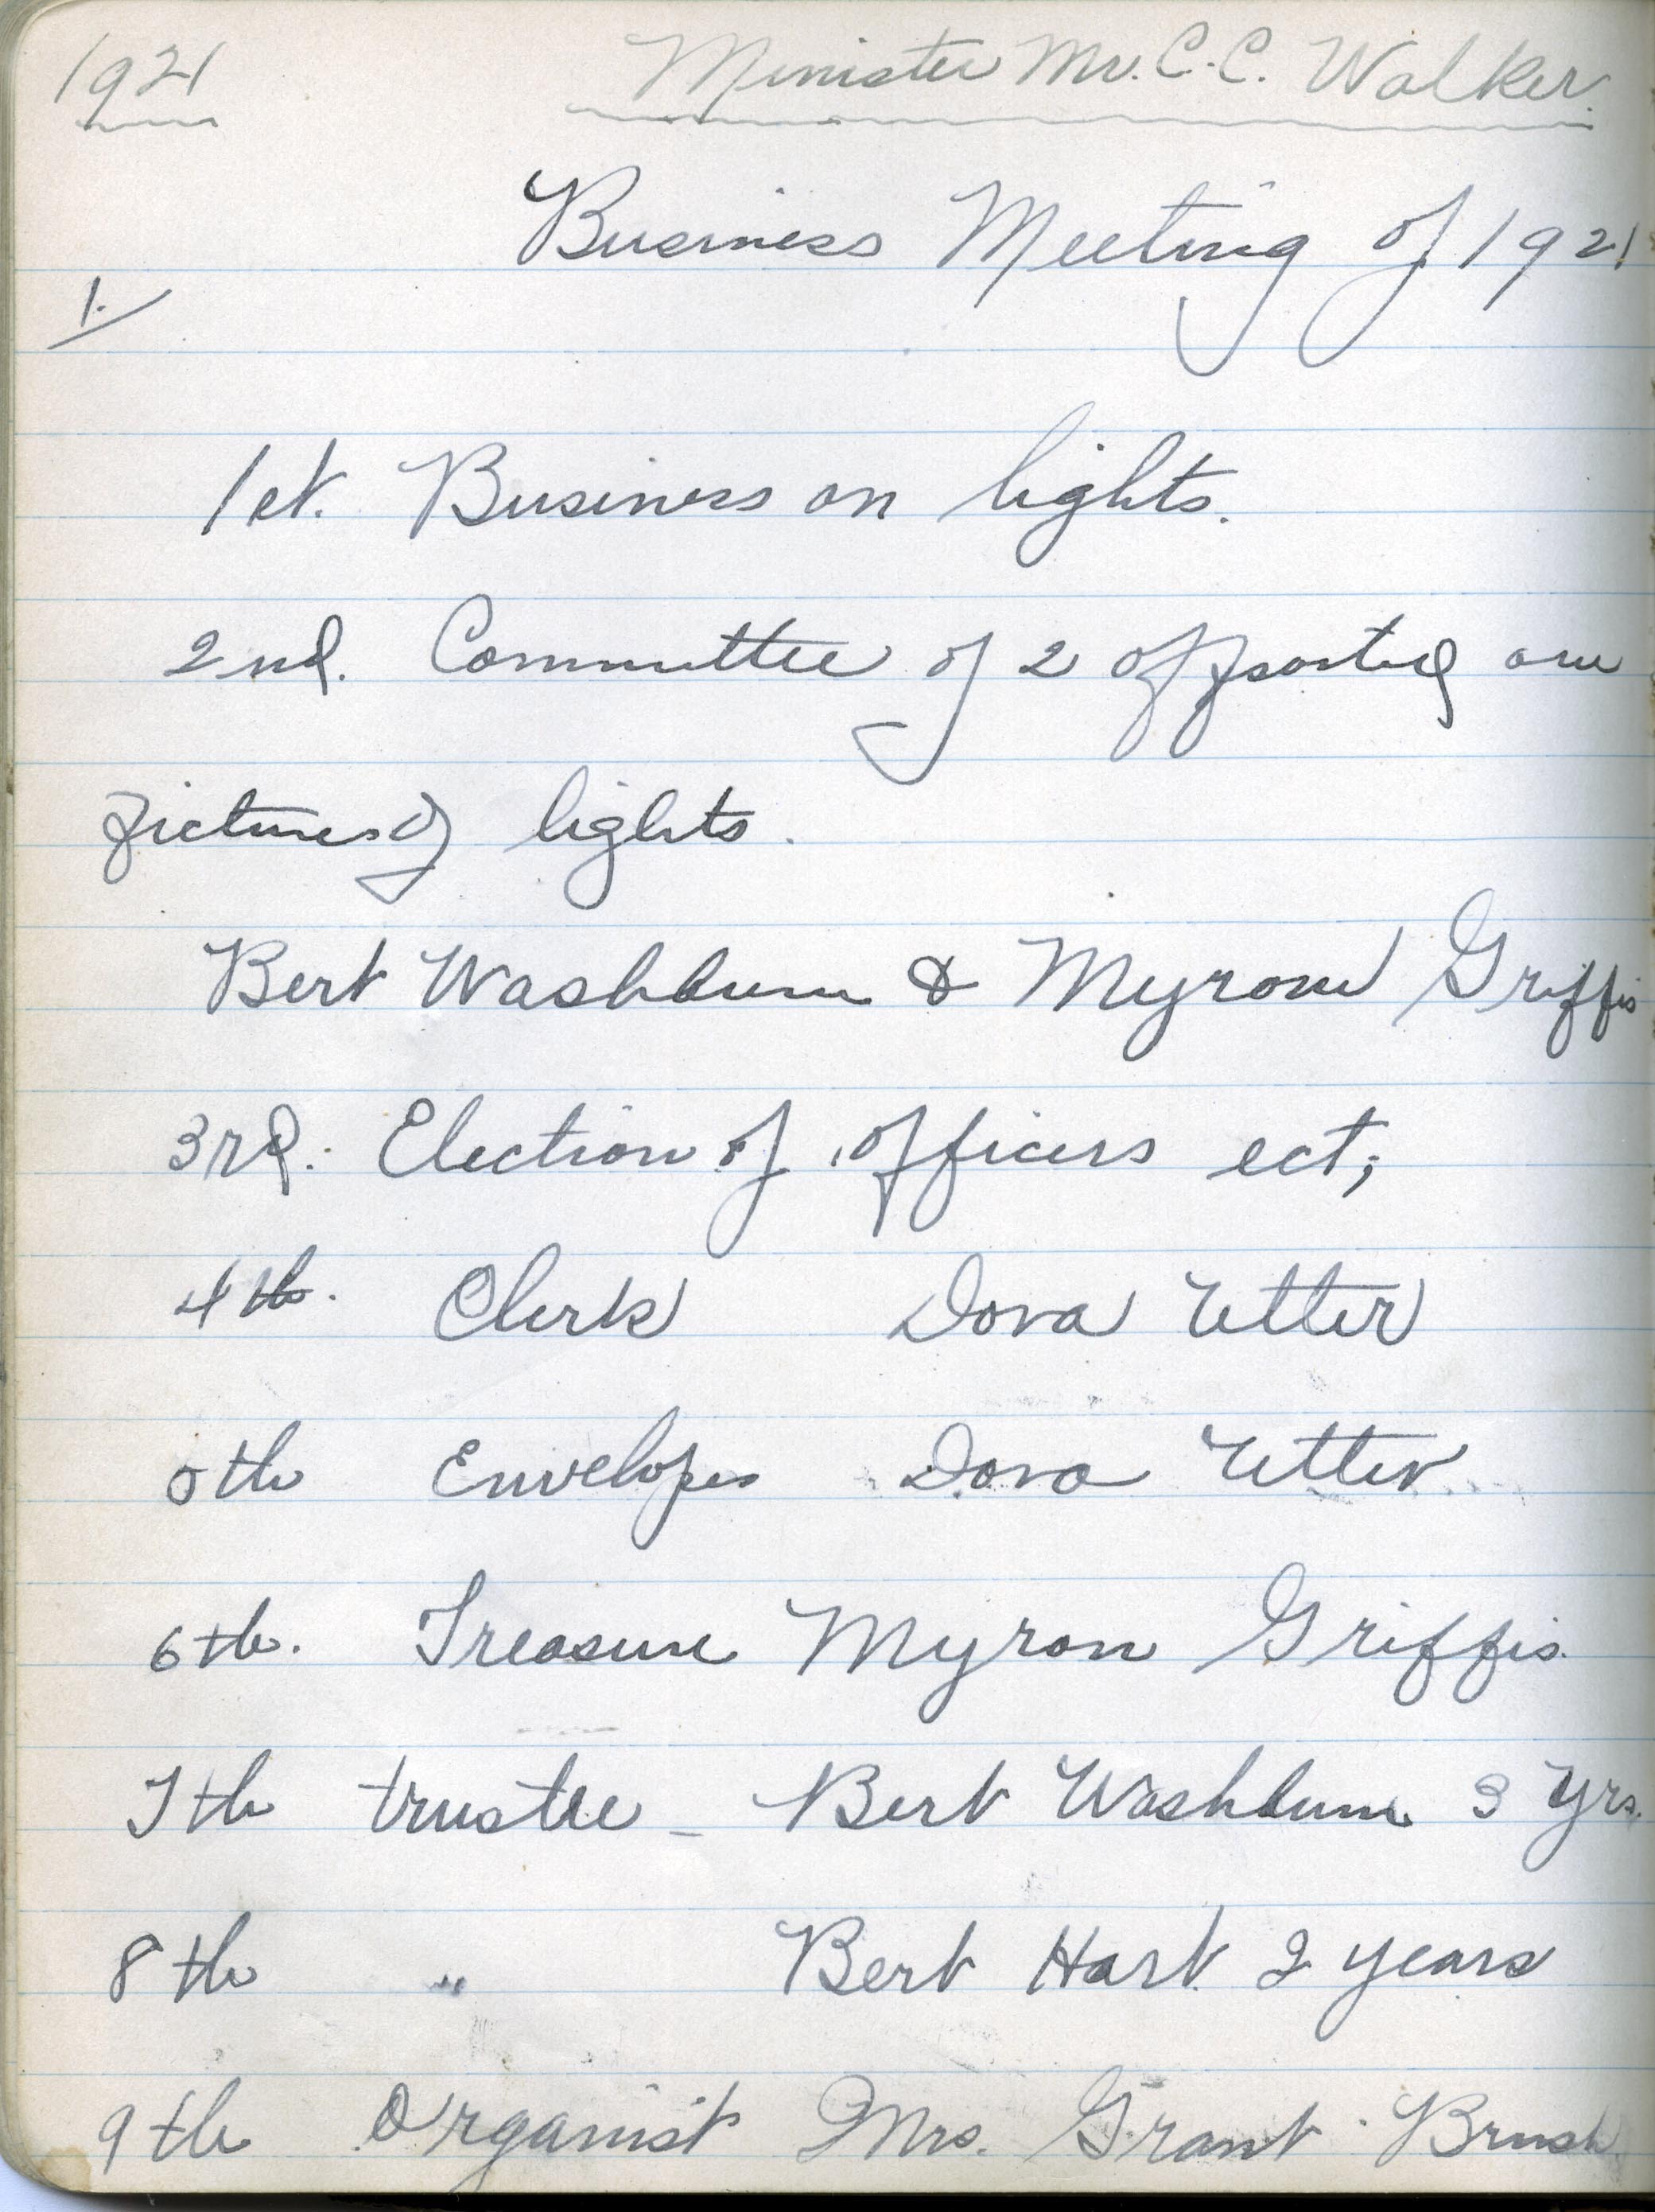 1921 Minister Mr. C. C. Walker.
Business Meeting of 1921
1.
1st. Business on lights.
2nd. Committee of 2 opported one
pictures of lights.
Bert Washburn & Myron Griffis
3rd. Election of officers ect;
4th. Clerk Dora Utter
5th Envelopes Dora Utter
6th. Treasure Myron Griffis.
7th trustee - Bert Washburn 3 yrs.
8th " Bert Hart 2 years
9th Organist Mrs. Grant Brush